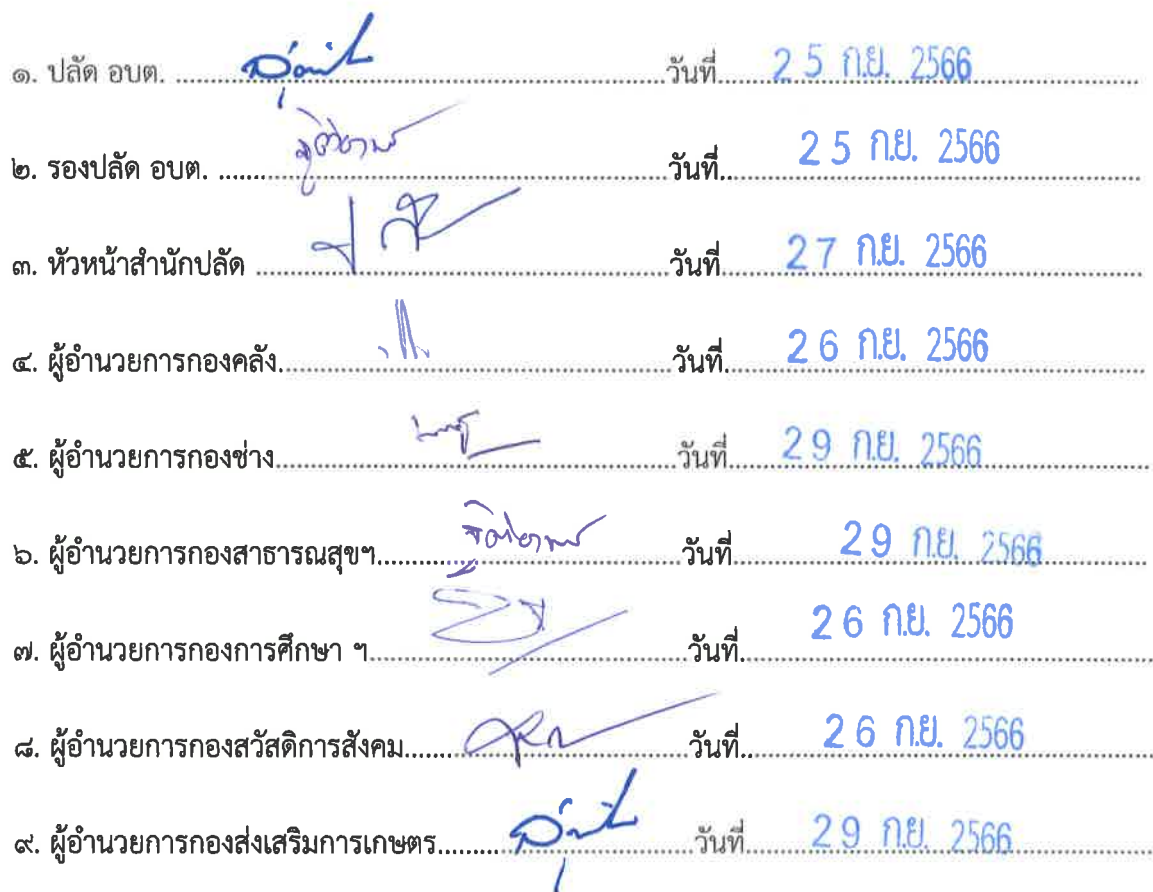 ๑. ปลัด อบต. ................วันที่..... 25 ก.ย. 2566
๒. รองปลัด อบต. ................วันที่..... 25 ก.ย. 2566
๓. หัวหน้าสำนักปลัด ................วันที่..... 27 ก.ย. 2566
๔. ผู้อำนวยการกองคลัง................วันที่..... 26 ก.ย. 2566
๕. ผู้อำนวยการกองช่าง................วันที่..... 29 ก.ย. 2566
๖. ผู้อำนวยการกองสาธารณสุขฯ................วันที่..... 29 ก.ย. 2566
๗. ผู้อำนวยการกองการศึกษา ฯ................วันที่..... 26 ก.ย. 2566
๘. ผู้อำนวยการกองสวัสดิการสังคม................วันที่..... 26 ก.ย. 2566
๙. ผู้อำนวยการกองส่งเสริมการเกษตร................วันที่..... 29 ก.ย. 2566